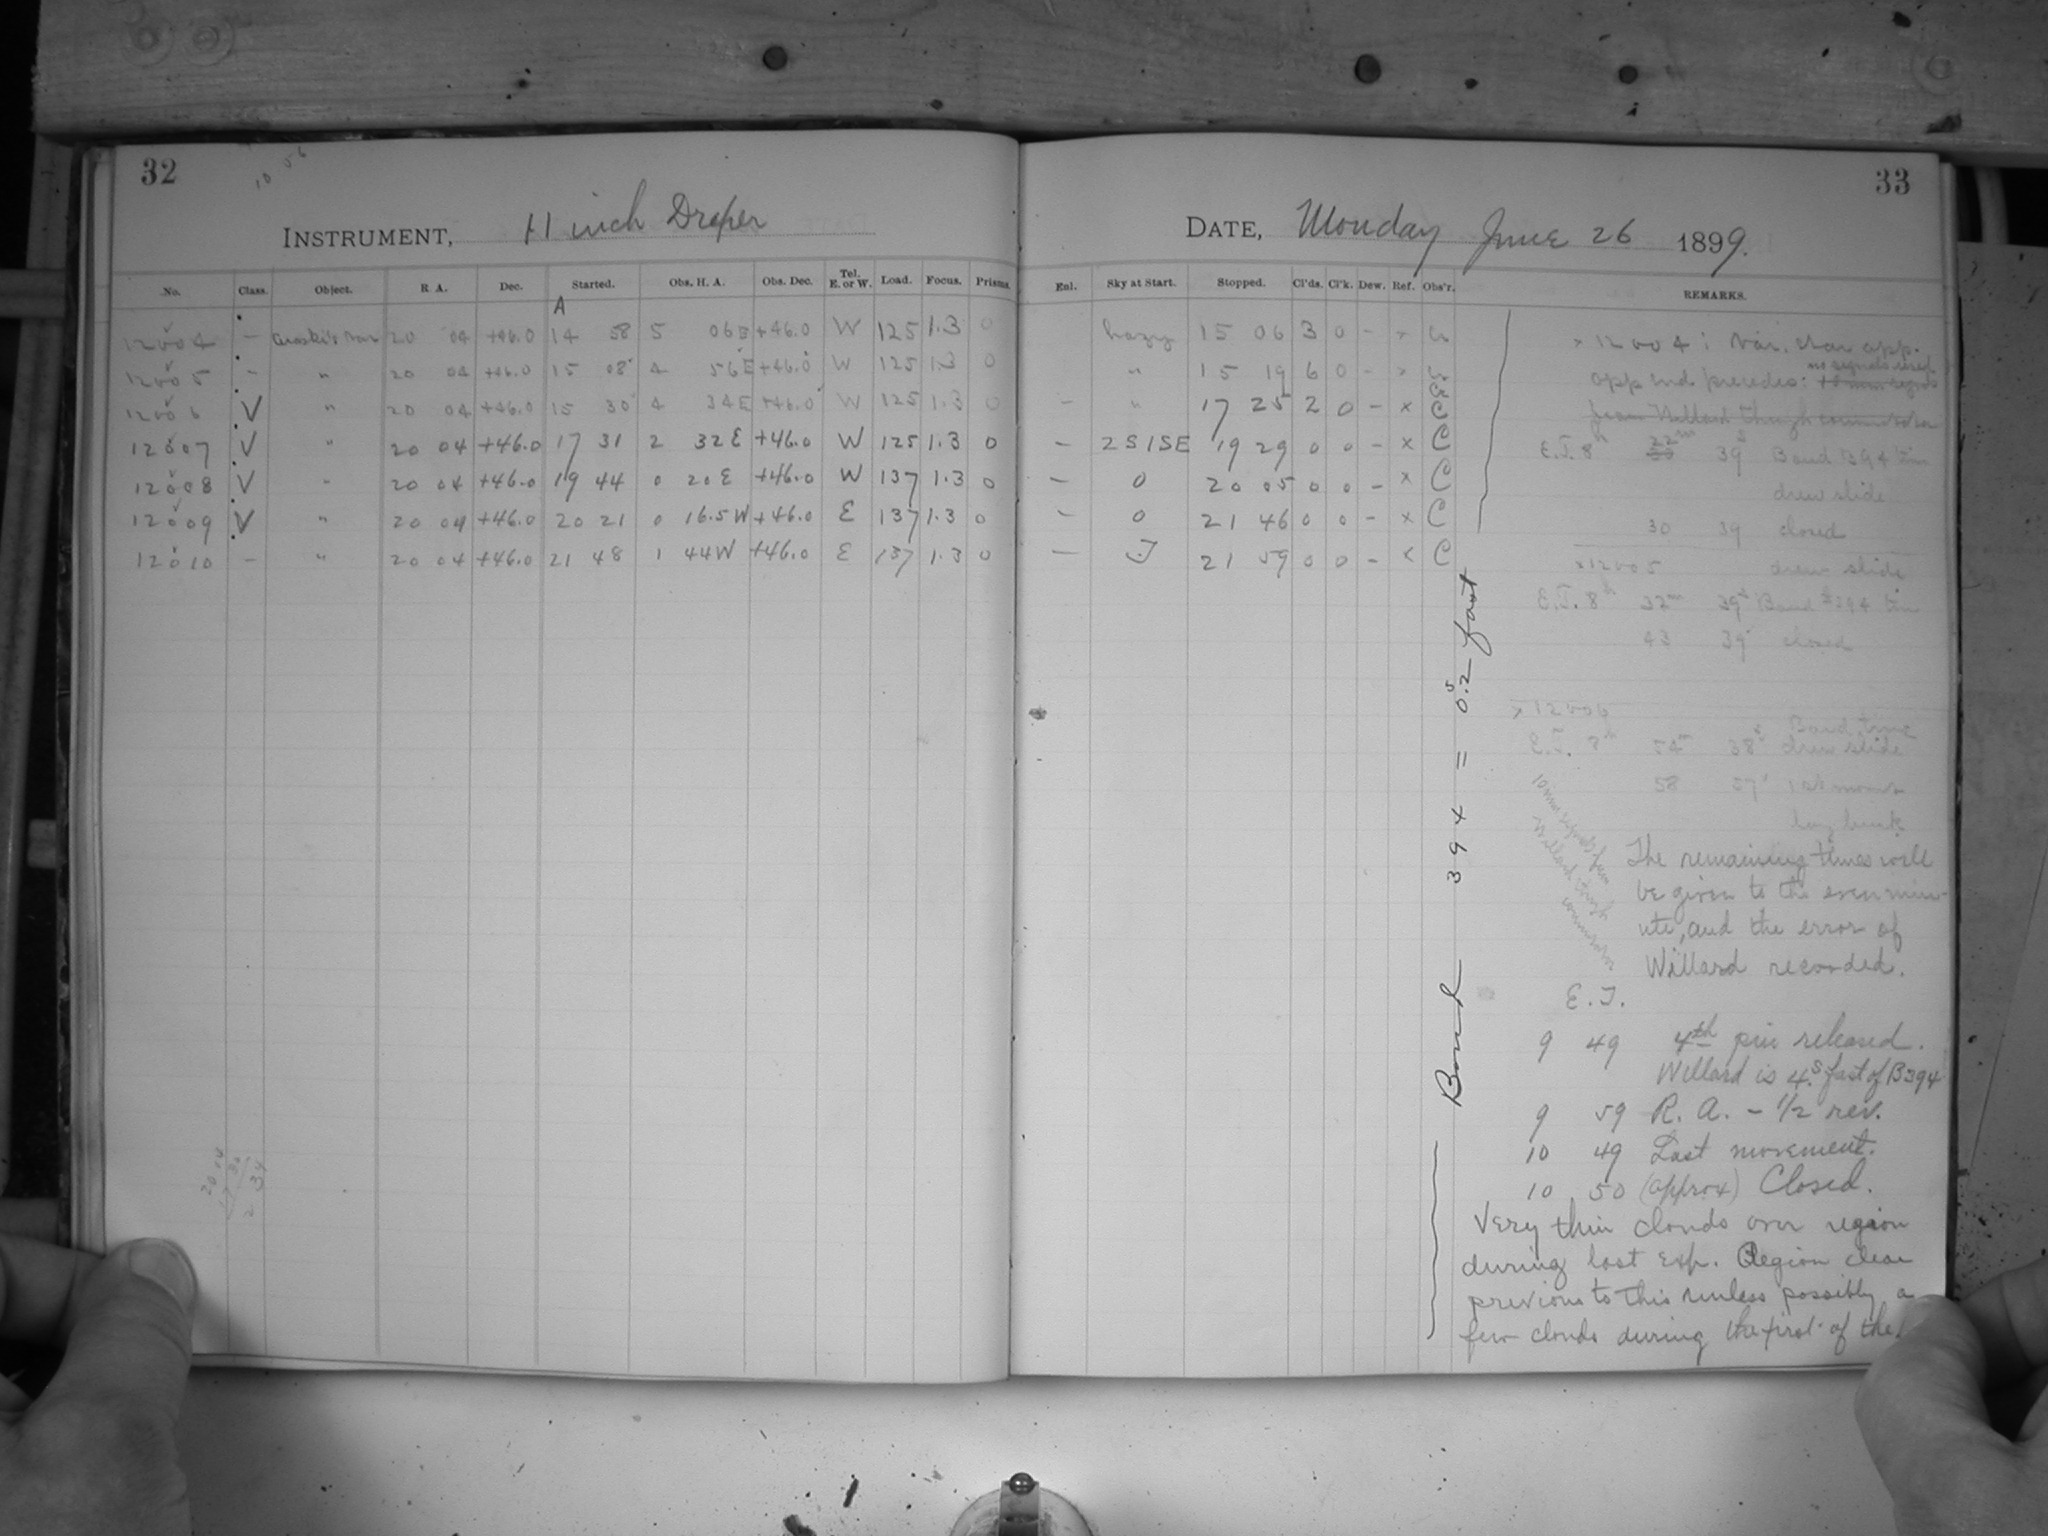 32
10 56
INSTRUMENT, 11 inch Draper
No. Class. Object. R A. Dec. Started. Obs. H. A. Obs. Dec. Tel. E. or W. Load. Focus. Prisms.
A
12004 - 20 04 +46.0 14 58 5 06E +46.0 W 125 1.3 0
12005 - " 20 04 +46.0 15 08 4 56E +46.0 W 125 1.3 0
12006 V " 20 04 +46.0 15 30 4 34E +46.0 W 125 1.3 0
12007 V " 20 04 +46.0 17 31 2 32E +46.0 W 125 1.3 0
12008 V " 20 04 +46.0 19 44 0 20E +46.0 W 137 1.3 0
12009 V " 20 04 +46.0 20 21 0 16.5W +46.0 E 137 1.3 0
12010 - " 20 04 +46.0 21 48 1 44W +46.0 E 137 1.3 0
20 04
17 30
2 34
33
DATE, Monday June 26 1899.
Enl. Sky at Start. Stopped. Cl'ds. Cl'k. Dew. Ref. Obs'r. REMARKS.
hazy 15 06 3 0 - x
" 15 19 6 0 - x
- " 17 25 2 0 - x C
- 2S1SE 19 29 0 0 - x C
- 0 20 05 0 0 - x C
- 0 21 46 0 0 - x C
- 21 59 0 0 - x C
Bond 394 = 0.2s fast
x 12004: Var. star app.
no signals used
app and precedes:
from Willard through
E.T. 8h 22m 39s Bond 394 tim
drew slide
30 39 closed
x12005 drew slide
E.T. 8h 32m 39s Bond #394 tim
43 39 closed
x 12006
Bond time
E.T. 8h 54m 38s drew slide
58 57s 1st movt
10 min signals from
Willard through
The remaining times will
be given to the even min-
ute, and the error of
Willard recorded.
E.T.
9 49 4th pin released.
Willard is 4s. fast of B394
9 59 R. A. - 1/2 rev.
10 49 Last movement.
10 50 (approx) Closed.
Very thin clouds over region
during last exp. Region clear
previous to this unless possibly a
few clouds during the first of the